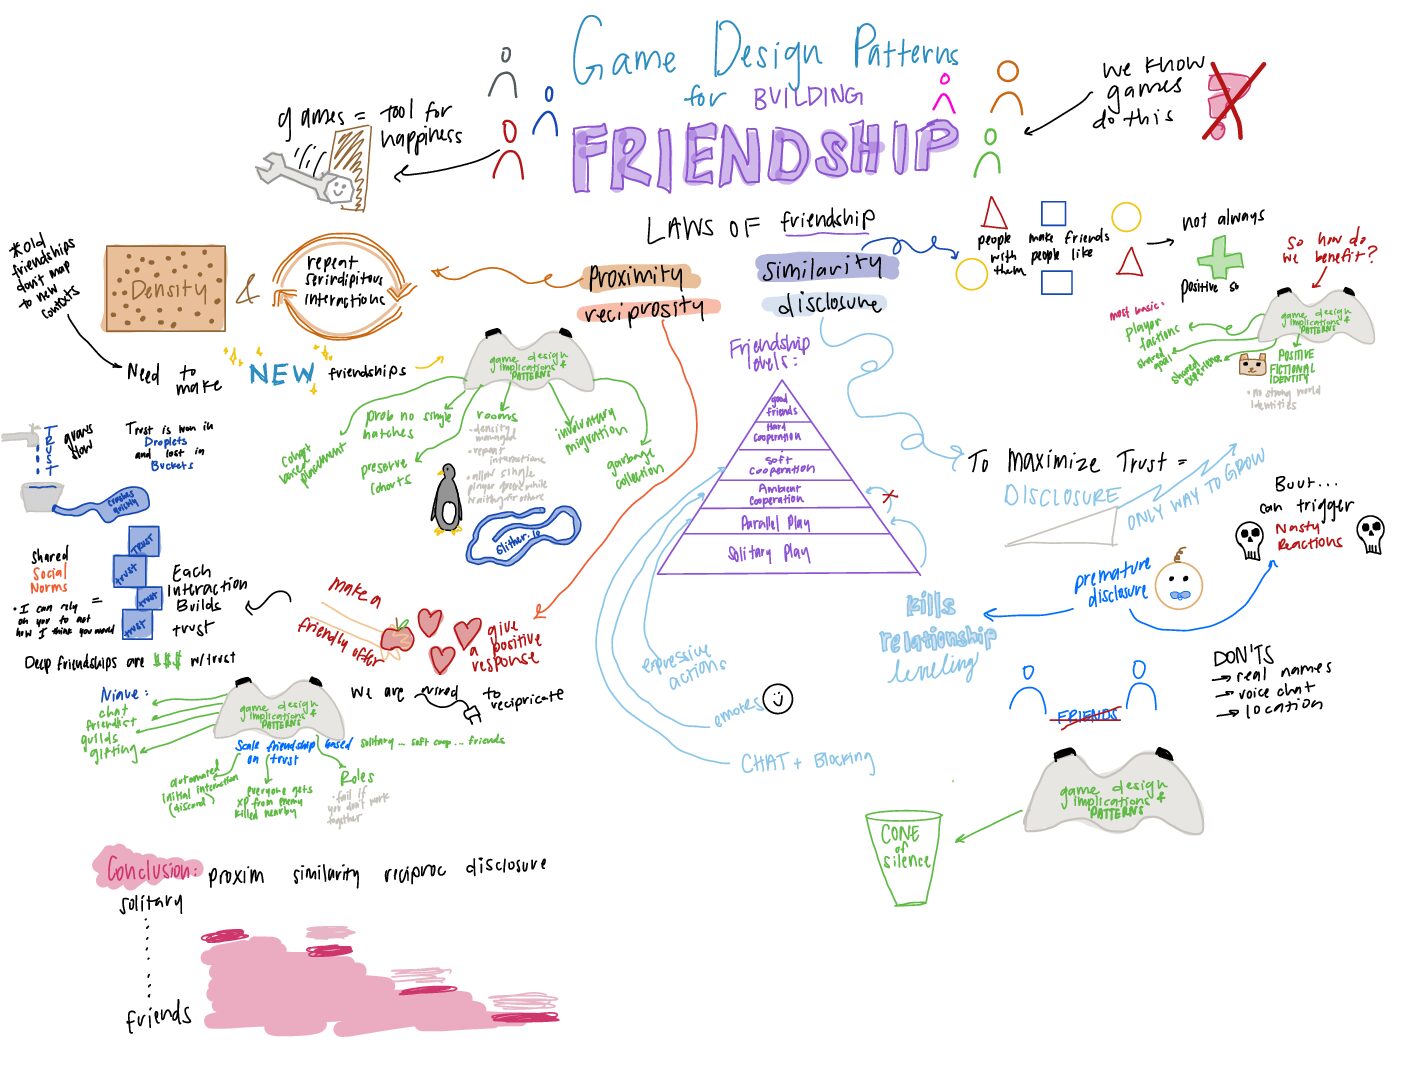 Game Design Patterns
for BUILDING
FRIENDSHIP
games = tool for
happiness
we know
games
do this
LAWS OF friendship
Proximity
similarity
reciprosity
disclosure
repeat
serindipitous
interactions
Density
&
*old
friendships
don't map
to new
contexts
Need to
make
NEW friendships
game design
implications &
PATTERNS
cohort
based
placement
prob no single
matches
preserve
cohorts
rooms
• density
managed
• repeat
interactions
• allow single
player games while
waiting for others
involuntary
migration
garbage
collection
Slither.io
people
with
them
make friends
people like
not always
positive so
So how do
we benefit?
game design
implications &
PATTERNS
most basic:
player
factions
shared
goal
shared experience
POSITIVE
FICTIONAL
IDENTITY
• no strong world
identities
Friendship
levels:
good
friends
Hard
cooperation
soft
cooperation
Ambient
cooperation
Parallel Play
Solitary Play
expressive
actions
emotes
CHAT + Blocking
To maximize Trust =
DISCLOSURE
ONLY WAY TO GROW
Buut...
can trigger
Nasty
Reactions
premature
disclosure
kills
relationship
leveling
FRIENDS
DON'TS
→ real names
→ voice chat
→ location
game design
implications &
PATTERNS
CONE
of
silence
TRUST
grows
slow
Trust is won in
Droplets
and lost in
Buckets
crashes
quickly
Shared
Social
Norms
• I can rely
on you to act
how I think you would
=
TRUST
trust
trust
trust
Each
Interaction
Builds
trust
make a
friendly offer
give
a positive
response
Deep friendships are $$$ w/trust
we are wired to
recipricate
Niave:
chat
friendlist
guilds
gifting
game design
implications &
PATTERNS
Scale friendship based
on trust
solitary ... soft coop ... friends
automated
initial interaction
(discord)
everyone gets
XP from enemy
killed nearby
Roles
• fail if
you don't work
together
Conclusion:
proxim similarity reciproc disclosure
solitary
friends